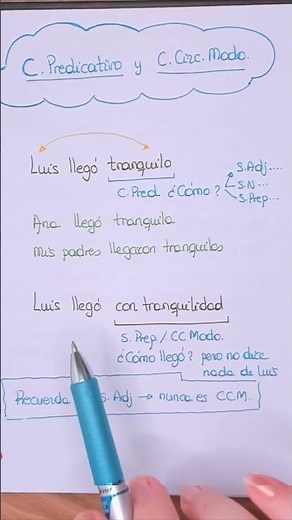 C. Predicativo y C. Circ. Modo.
Luis llegó tranquilo
C. Pred ¿Cómo?
S. Adj....
S. N...
S. Prep...
Ana llegó tranquila
Mis padres llegaron tranquilos
Luis llegó con tranquilidad
S. Prep / CC Modo.
¿Cómo llegó? pero no dice
nada de Luis
Recuerda S. Adj → nunca es CCM.